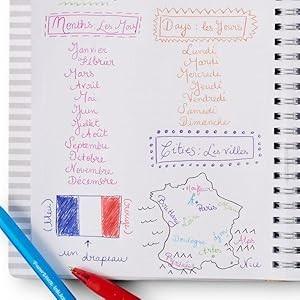 Months: Les Mois
Janvier
Février
Mars
Avril
Mai
Juin
Juillet
Août
Septembre
Octobre
Novembre
Décembre
Days: les Jours
Lundi
Mardi
Mercredi
Jeudi
Vendredi
Samedi
Dimanche
Cities: Les Villes
(bleu)
(rouge)
un drapeau
Paris
Loire
Lyon
Alps
Arles
Pyrenees
Nice